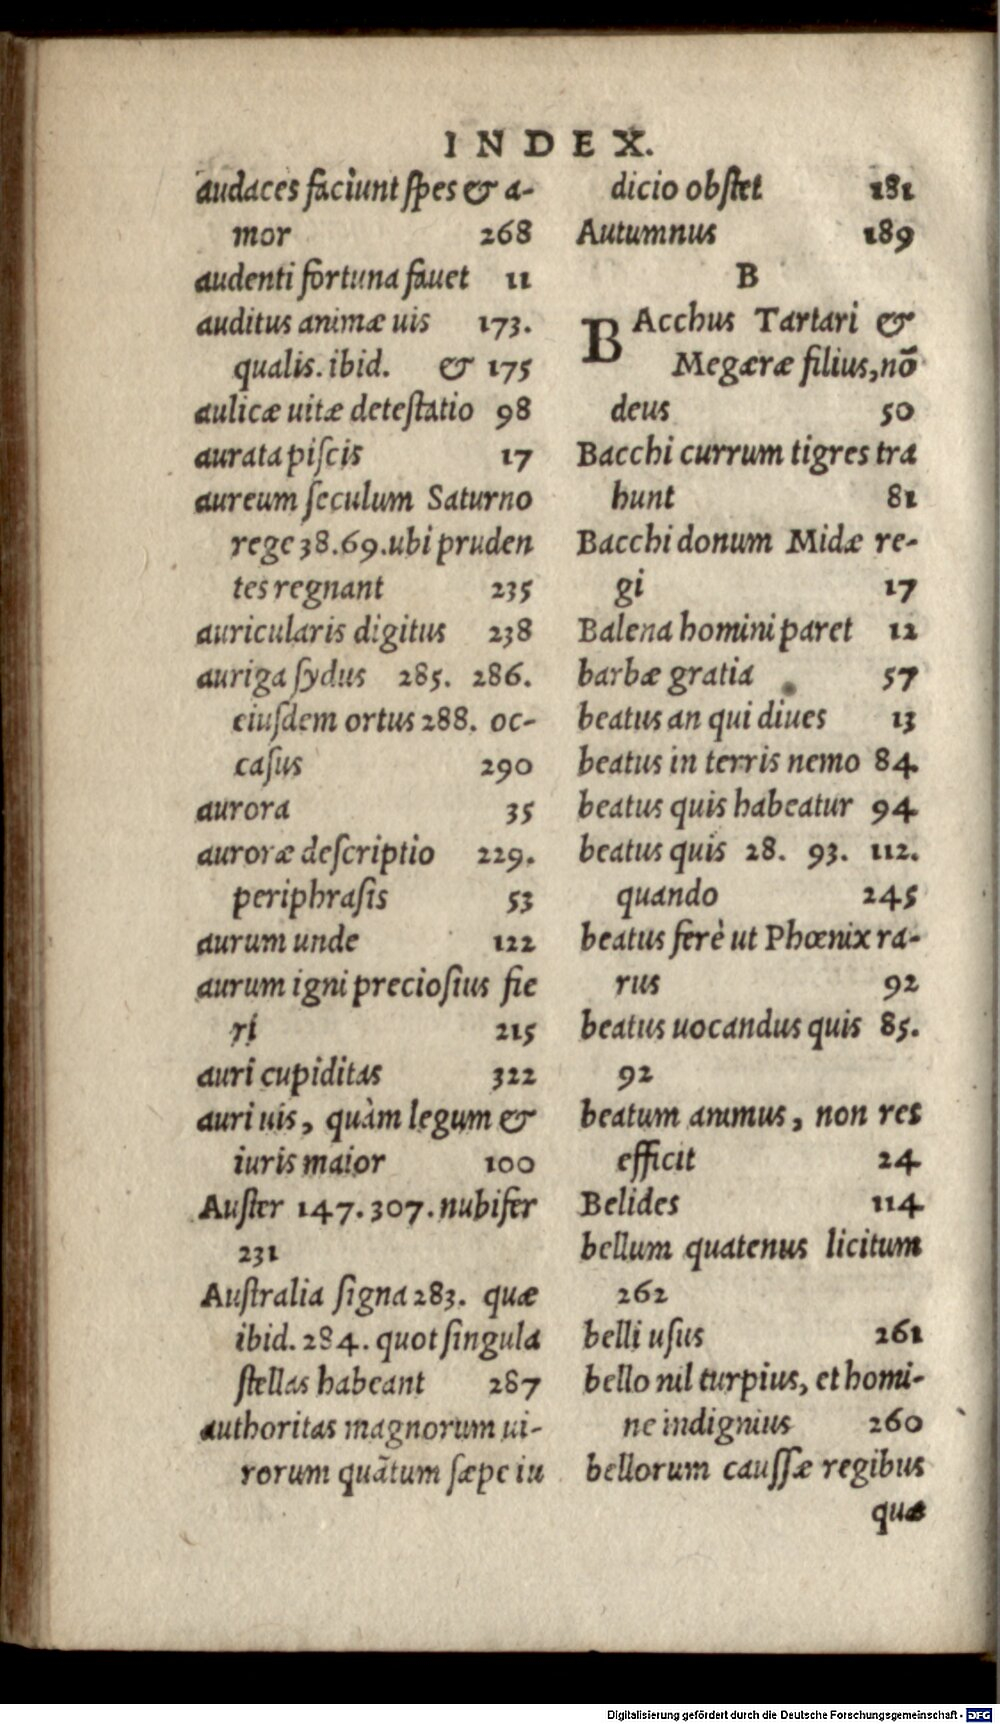 INDEX.
audaces faciunt spes & a-
mor 268
audenti fortuna fauet 11
auditus animæ uis 173.
qualis. ibid. & 175
aulicæ uitæ detestatio 98
aurata piscis 17
aureum seculum Saturno
rege 38. 69. ubi pruden
tes regnant 235
auricularis digitus 238
auriga sydus 285. 286.
eiusdem ortus 288. oc-
casus 290
aurora 35
auroræ descriptio 229.
periphrasis 53
aurum unde 122
aurum igni preciosius fie
ri 215
auri cupiditas 322
auri uis, quàm legum &
iuris maior 100
Auster 147. 307. nubifer
231
Australia signa 283. quæ
ibid. 284. quot singula
stellas habeant 287
authoritas magnorum ui-
rorum quãtum sæpe iu
dicio obstet 181
Autumnus 189
B
BAcchus Tartari &
Megæræ filius, nõ
deus 50
Bacchi currum tigres tra
hunt 81
Bacchi donum Midæ re-
gi 17
Balena homini paret 12
barbæ gratia 57
beatus an qui diues 13
beatus in terris nemo 84
beatus quis habeatur 94
beatus quis 28. 93. 112.
quando 245
beatus ferè ut Phœnix ra-
rus 92
beatus uocandus quis 85.
92
beatum animus, non res
efficit 24
Belides 114
bellum quatenus licitum
262
belli usus 261
bello nil turpius, et homi-
ne indignius 260
bellorum caussæ regibus
quæ
Digitalisierung gefördert durch die Deutsche Forschungsgemeinschaft - DFG